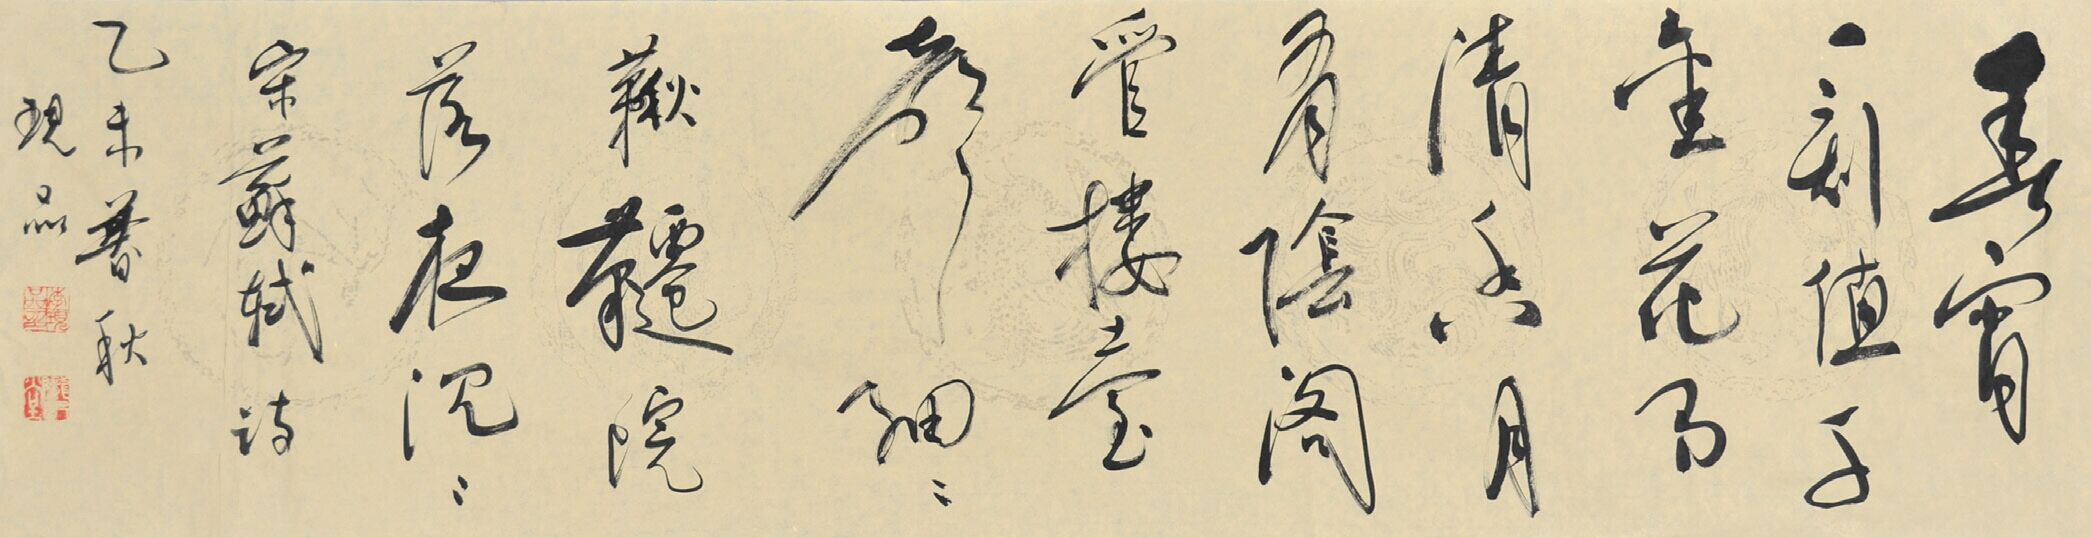 春宵
一刻值千
金花有
清香月
有陰閣
管樓臺
聲細〻
鞦韆院
落夜沉〻
宋蘇軾詩
乙未暮秋
現品